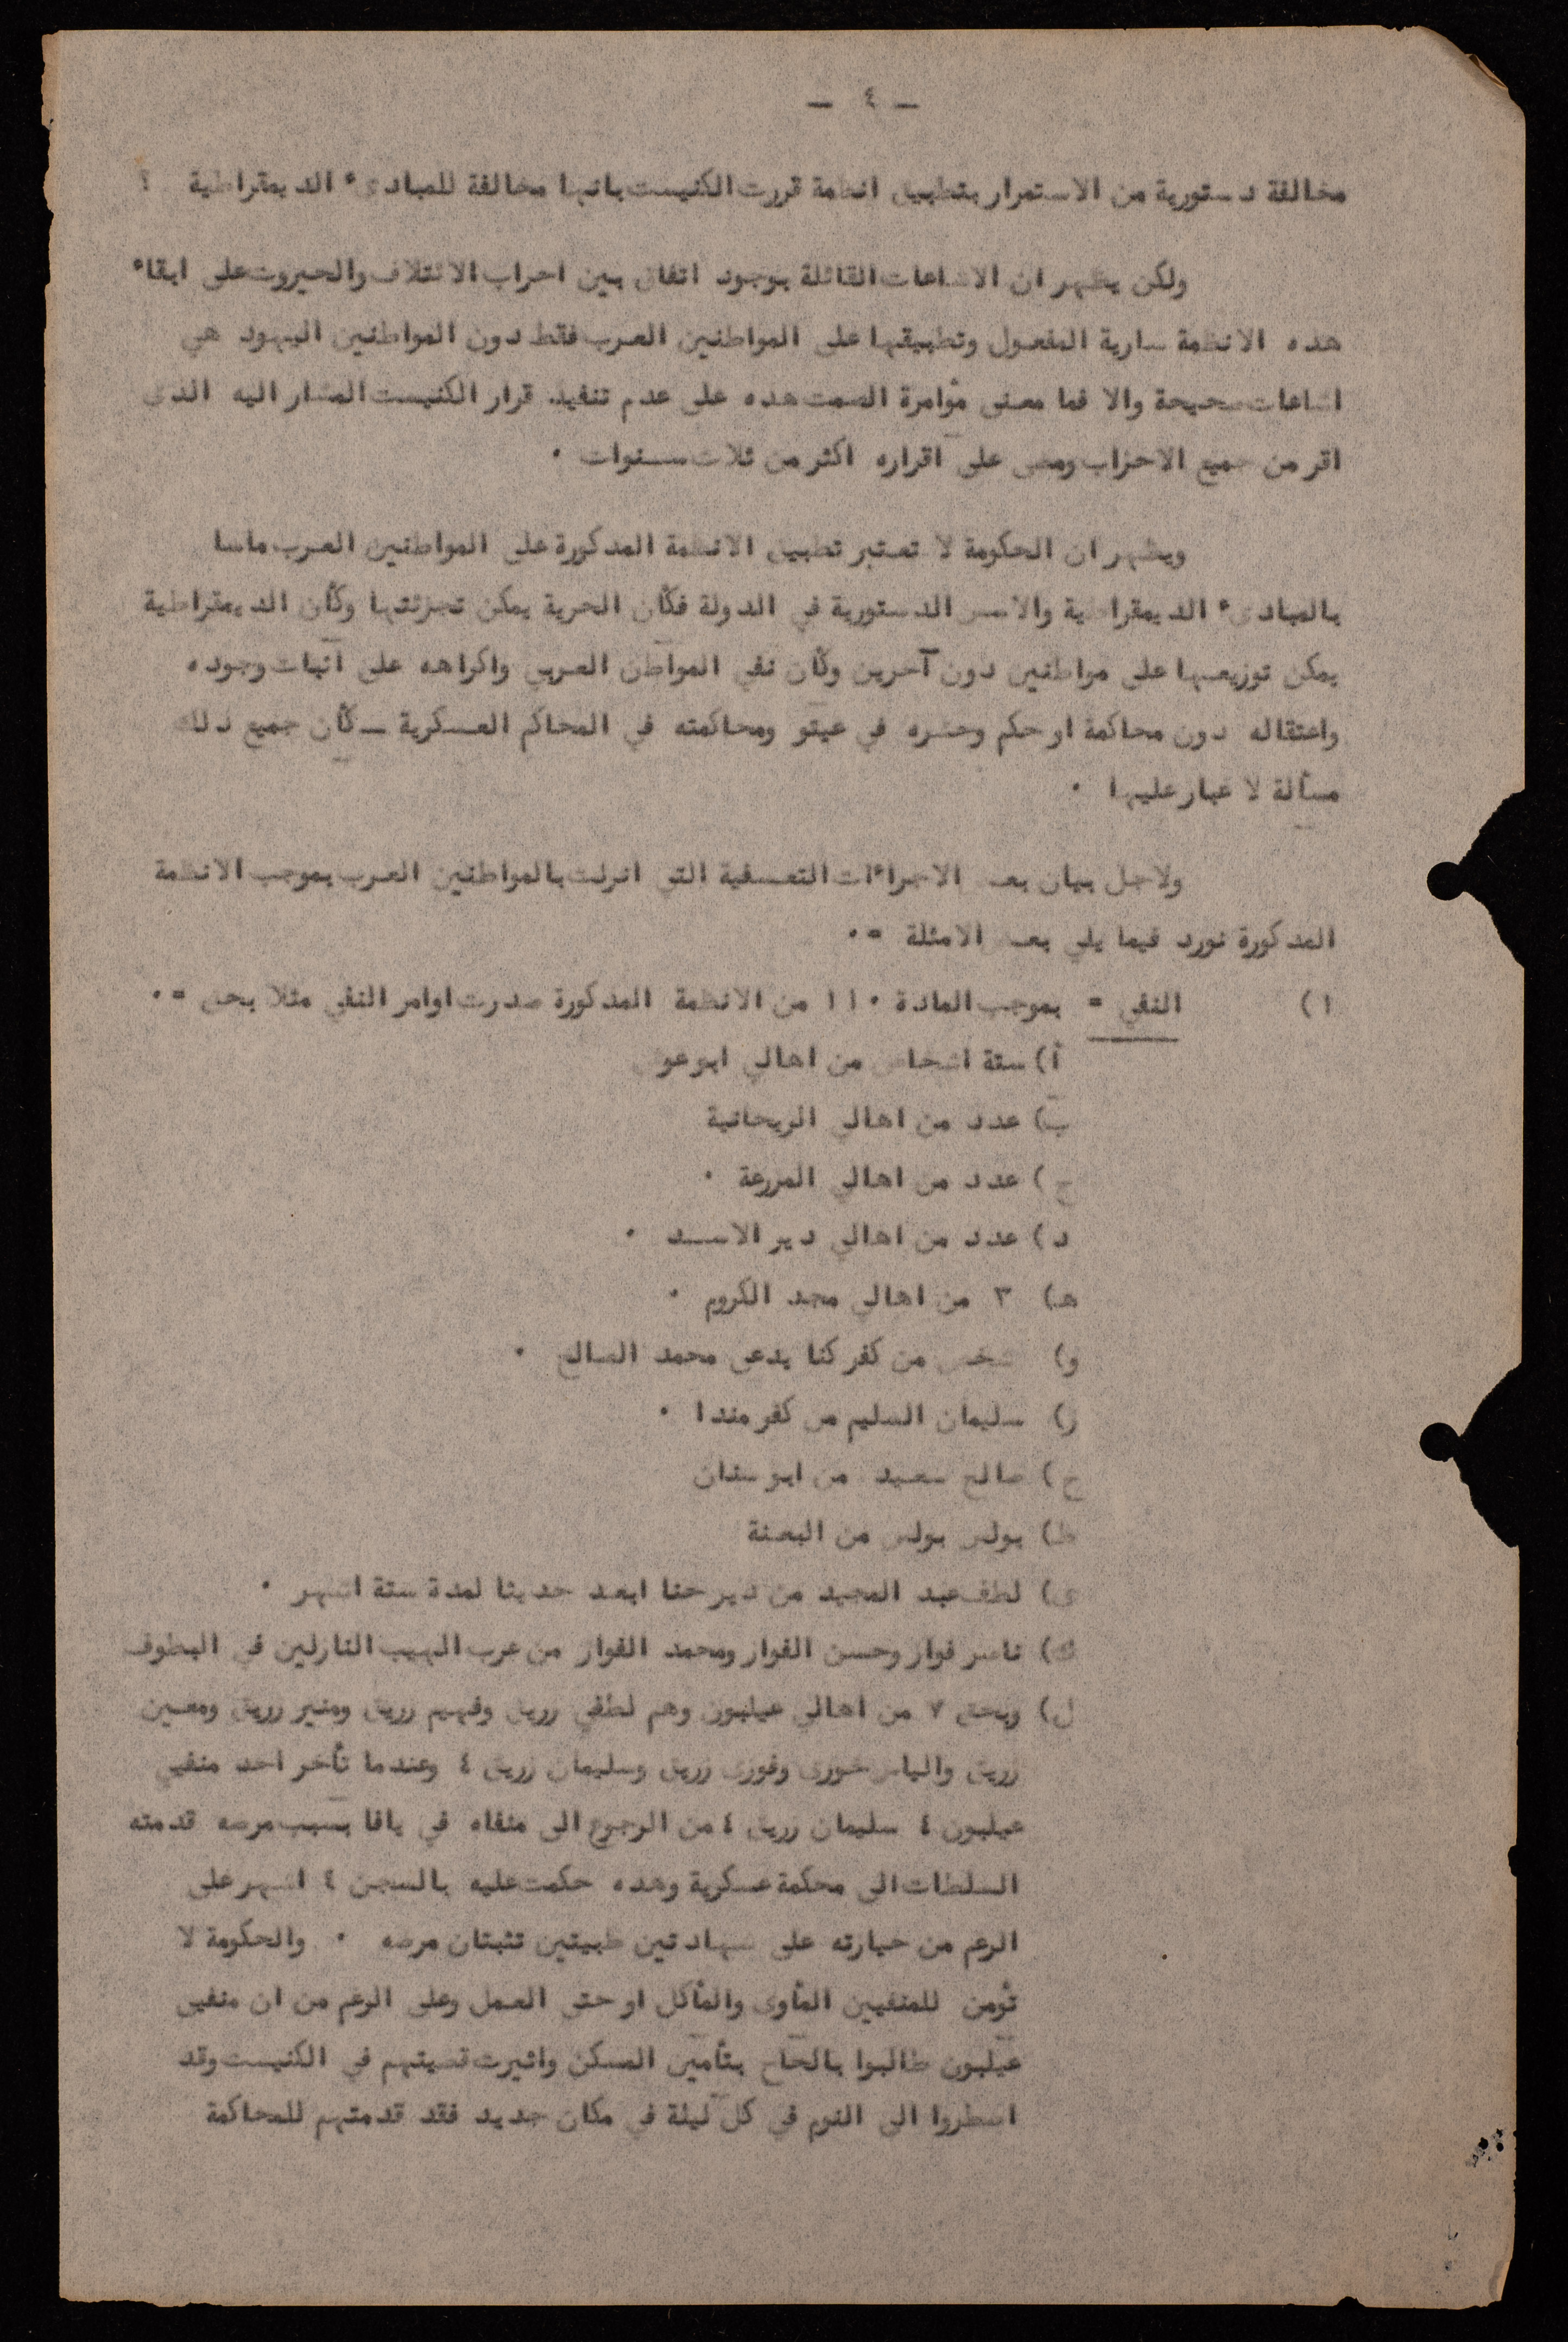 — ٤ —
مخالفة دستورية من الاستمرار بتطبيق انظمة قررت الكنيست بانها مخالفة للمبادىء الديمقراطية ؟
ولكن يظهر ان الاشاعات القائلة بوجود اتفاق بين احزاب الائتلاف والحيروت على ابقاء
هذه الانظمة سارية المفعول وتطبيقها على المواطنين العرب فقط دون المواطنين اليهود هي
اشاعات صحيحة والا فما معنى مؤامرة الصمت هذه على عدم تنفيذ قرار الكنيست المشار اليه الذى
اقر من جميع الاحزاب ومضى على اقراره اكثر من ثلاث سنوات ٠
ويظهر ان الحكومة لا تعتبر تطبيق الانظمة المذكورة على المواطنين العرب ماسا
بالمبادىء الديمقراطية والاسس الدستورية في الدولة فكأن الحرية يمكن تجزئتها وكأن الديمقراطية
يمكن توزيعها على مواطنين دون آخرين وكأن نفي المواطن العربي واكراهه على اثبات وجوده
واعتقاله دون محاكمة او حكم وحشره في غيتو ومحاكمته في المحاكم العسكرية ــ كأن جميع ذلك
مسألة لا غبار عليها ٠
ولاجل بيان بعض الاجراءات التعسفية التي انزلت بالمواطنين العرب بموجب الانظمة
المذكورة نورد فيما يلي بعض الامثلة =٠
١) النفي = بموجب المادة ١١٠ من الانظمة المذكورة صدرت اوامر النفي مثلا بحق =٠
أ) ستة اشخاص من اهالي ابو غوش
ب) عدد من اهالي الريحانية
ج) عدد من اهالي المزرعة ٠
د) عدد من اهالي دير الاسد ٠
هـ) ٣ من اهالي مجد الكروم ٠
و) شخص من كفر كنا يدعى محمد الصالح ٠
ز) سليمان السليم من كفر مندا ٠
ح) صالح سعيد من ابو سنان
ط) بولس بولس من البعنة
ى) لطف عبد المجيد من دير حنا ابعد حديثا لمدة ستة اشهر ٠
ك) ناصر فواز وحسن الفواز ومحمد الفواز من عرب الهيب النازلين في البطوف
ل) وبحق ٧ من اهالي عيلبون وهم لطفي زريق وفهيم زريق ومنير زريق ومعين
زريق والياس خورى وفوزى زريق وسليمان زريق ٤ وعندما تأخر احد منفيي
عيلبون ٤ سليمان زريق ٤ من الرجوع الى منفاه في يافا بسبب مرضه قدمته
السلطات الى محكمة عسكرية وهذه حكمت عليه بالسجن ٤ اشهر على
الرغم من حيازته على شهادتين طبيتين تثبتان مرضه ٠ والحكومة لا
تؤمن للمنفيين المأوى والمأكل او حتى العمل وعلى الرغم من ان منفيي
عيلبون طالبوا بالحاح بتأمين المسكن واثيرت قضيتهم في الكنيست وقد
اضطروا الى النوم في كل ليلة في مكان جديد فقد قدمتهم للمحاكمة